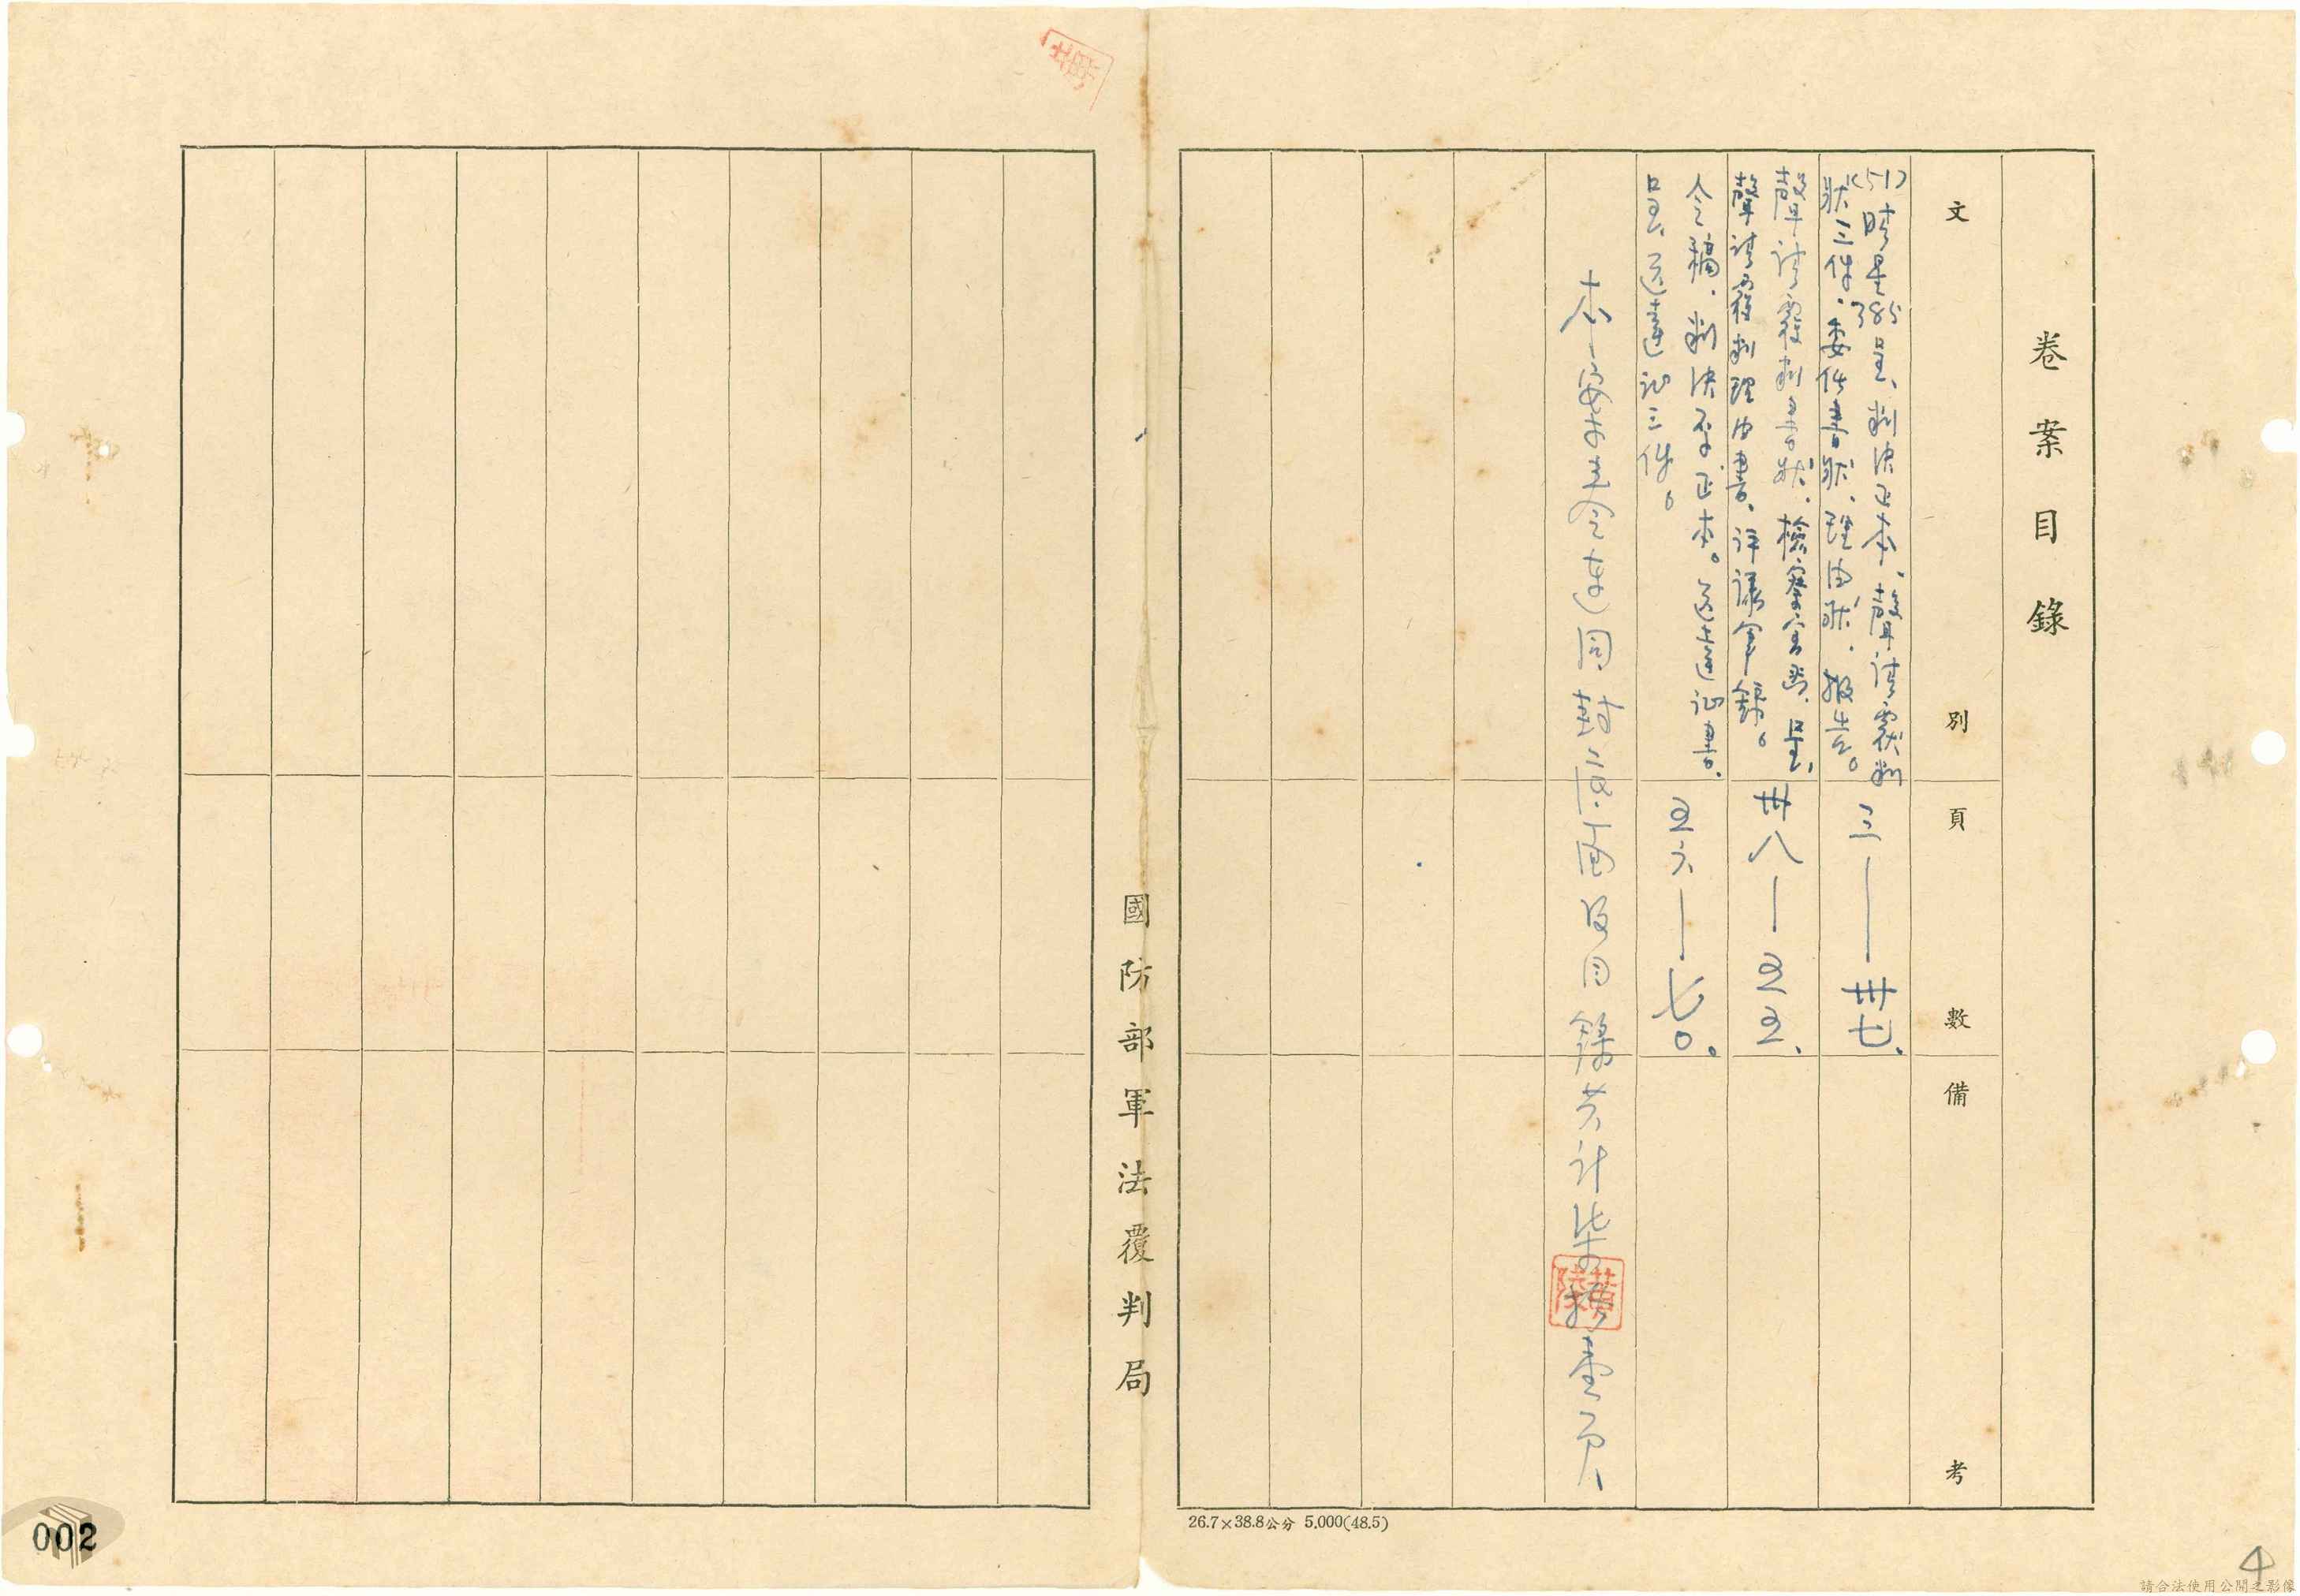 卷案目錄
文別
頁數
備考
(51)晴星385呈、判決正本、聲請覆判
狀三件、委任書狀、理由狀、報告。
三——卅七、
聲請覆判書狀、檢察官 呈、
聲請覆判理由書、評議筆錄。
卅八—五五、
令稿、判決 正本。送達證書、
呈、送達證三件。
五六—七〇。
本案 目 面及目錄共計柒拾壹頁
國防部軍法覆判局
26.7×38.8公分 5,000(48.5)
002
4
請合法使用公開之影像